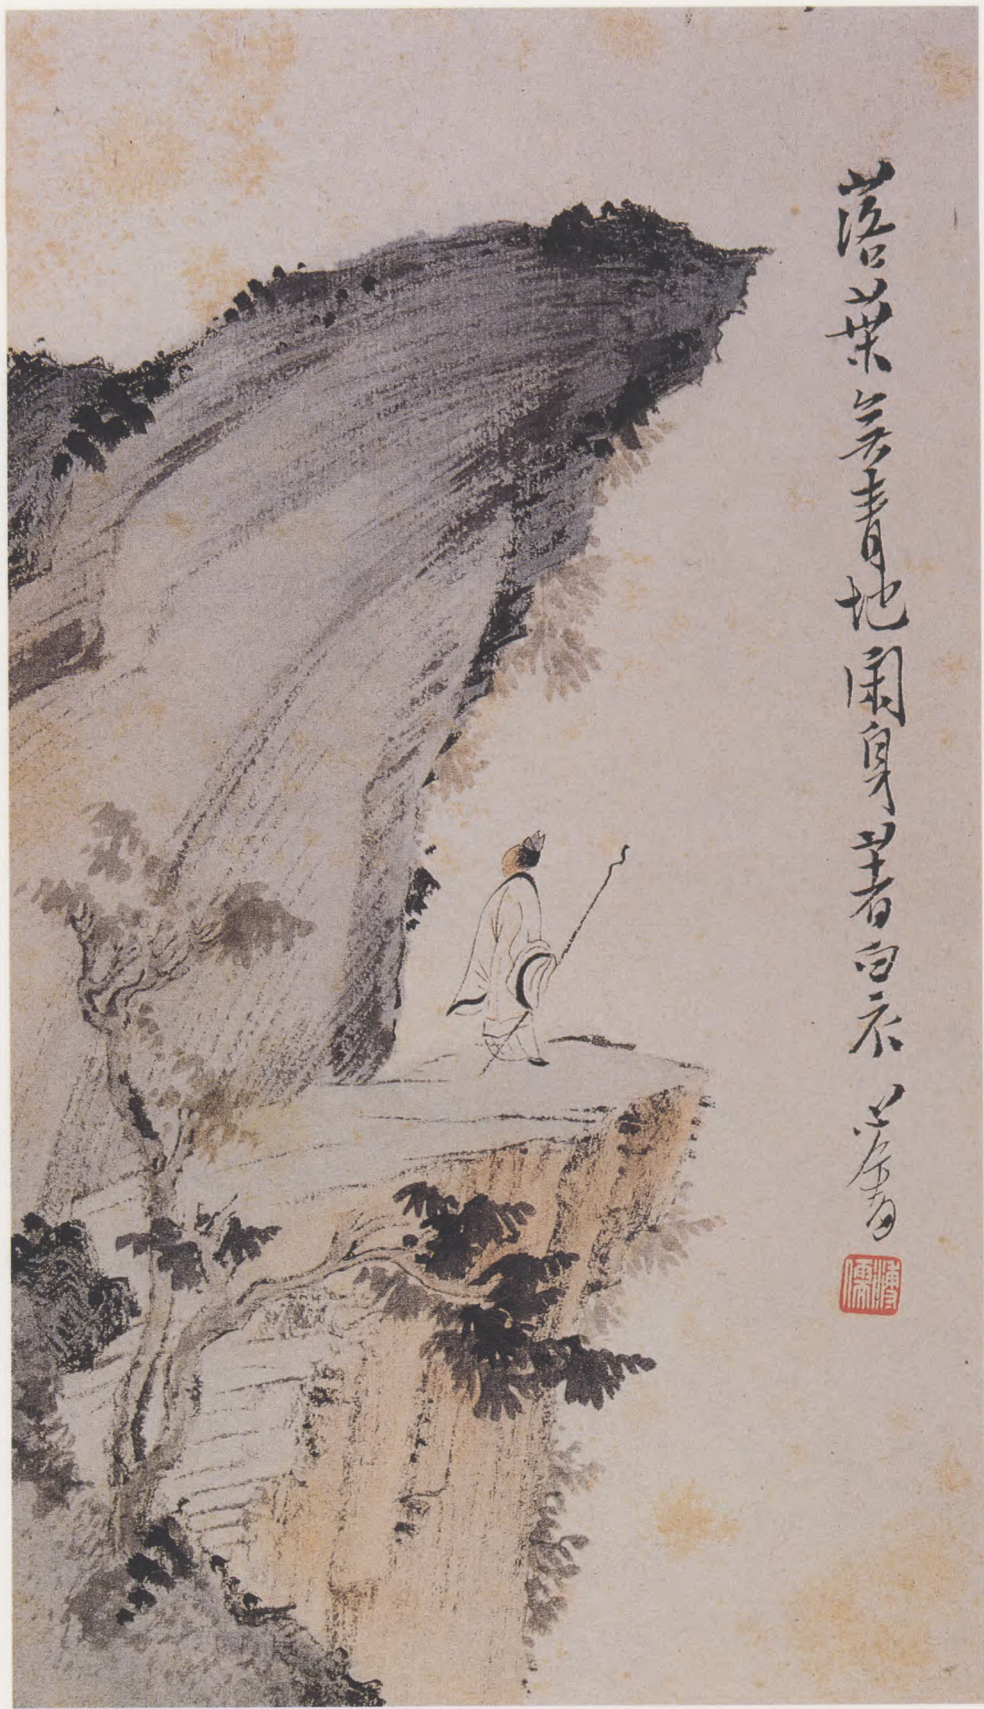 落葉無青地閑身著白衣 心畬
溥儒